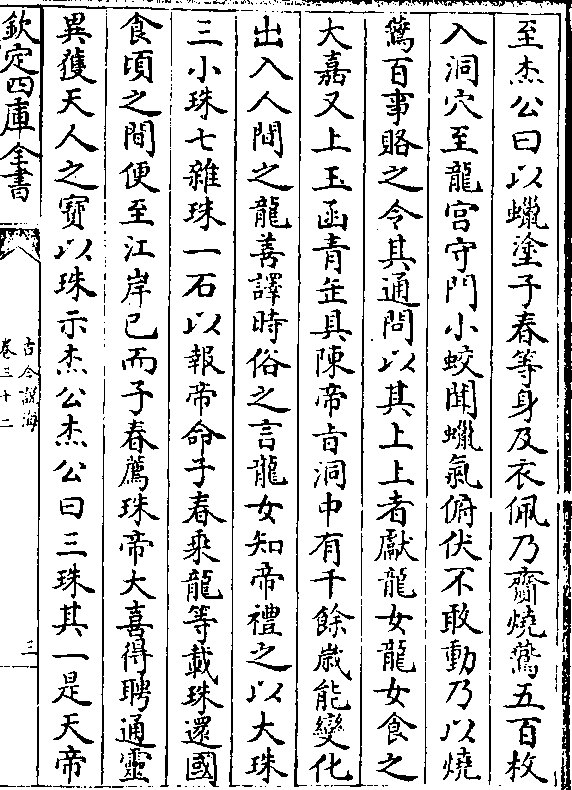 至杰公曰以蠟塗子春等身及衣佩乃齎燒鷰五百枚
入洞穴至龍宫守門小蛟聞蠟氣俯伏不敢動乃以燒
鷰百事賂之令其通問以其上上者獻龍女龍女食之
大嘉又上玉函青缶具陳帝㫖洞中有千餘歳能變化
出入人間之龍善譯時俗之言龍女知帝禮之以大珠
三小珠七雜珠一石以報帝命子春乘龍等載珠還國
食頃之間便至江岸已而子春薦珠帝大喜得聘通靈
異獲天人之寶以珠示杰公杰公曰三珠其一是天帝
欽定四庫全書
古今說海
卷三十二
三